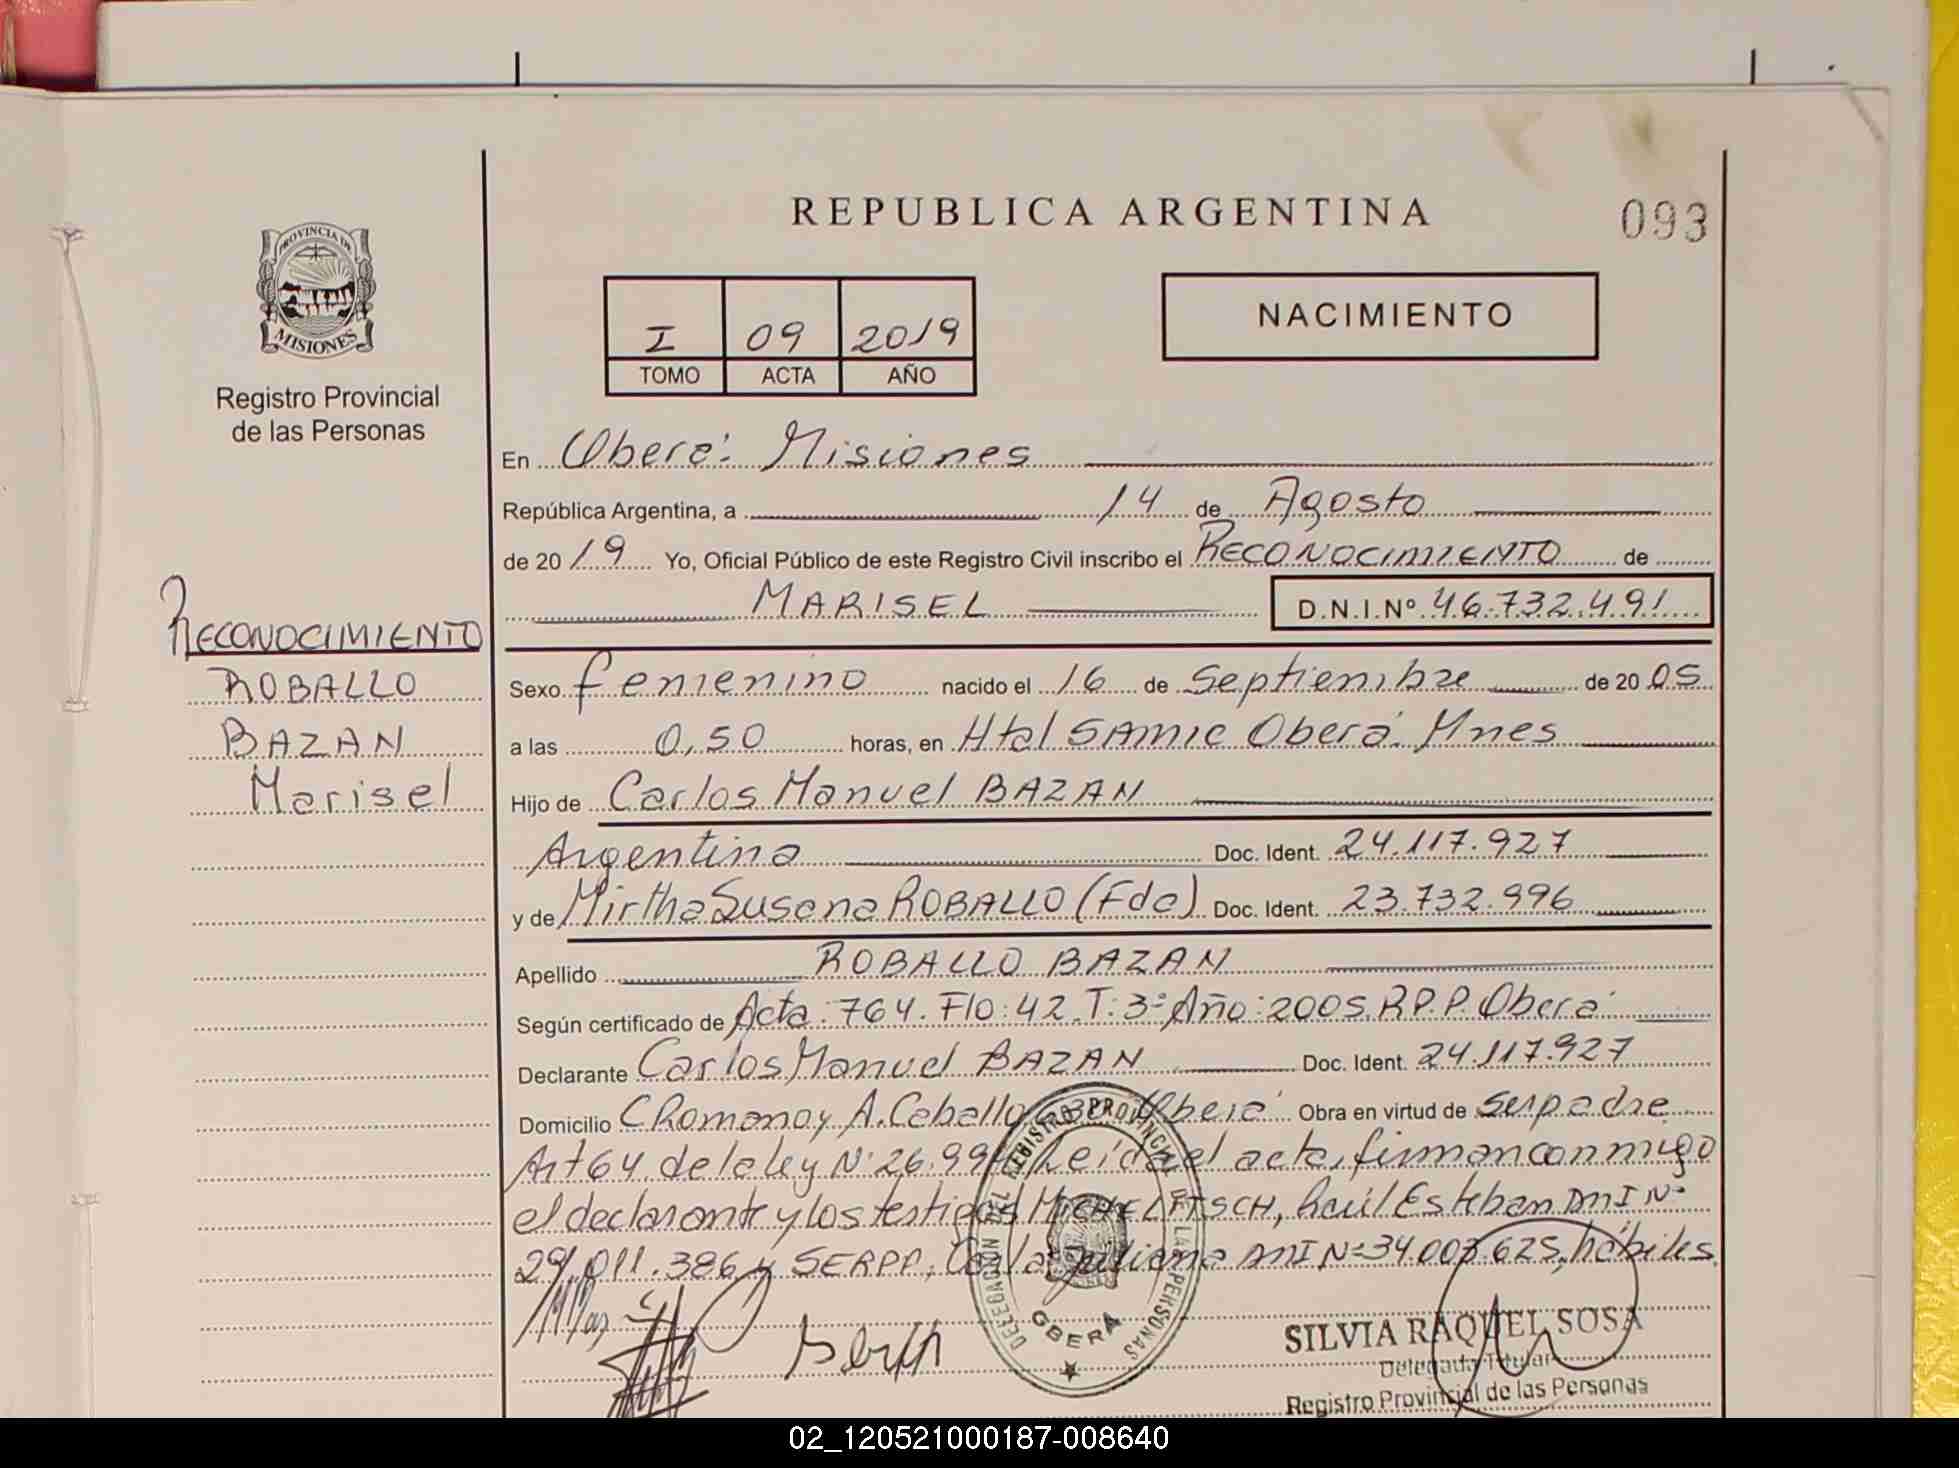 REPUBLICA ARGENTINA
093
PROVINCIA DE
MISIONES
Registro Provincial
de las Personas
I 09 2019
TOMO ACTA AÑO
NACIMIENTO
En Oberá: Misiones
República Argentina, a 14 de Agosto
de 2019 Yo, Oficial Público de este Registro Civil inscribo el RECONOCIMIENTO de
MARISEL D.N.I.Nº 46.732.491
RECONOCIMIENTO
ROBALLO
BAZAN
Marisel
Sexo femenino nacido el 16 de Septiembre de 2005
a las 0,50 horas, en Htal SAMIC Oberá. Mnes
Hijo de Carlos Manuel BAZAN
Argentina Doc. Ident. 24.117.927
y de Mirtha Susana ROBALLO (Fda) Doc. Ident. 23.732.996
Apellido ROBALLO BAZAN
Según certificado de Acta: 764. Flo: 42. T: 3º Año: 2005. R.P.P. Oberá
Declarante Carlos Manuel BAZAN Doc. Ident. 24.117.927
Domicilio C Romano y A. Caballo Oberá Obra en virtud de ser padre
Art 64. de la ley Nº 26.994 Leida el acta, firman conmigo
el declarante y los testigos MICHELITSCH, Raúl Esteban DNI Nº
29.011.386 y SERPP, Carla Juliana DNI Nº 34.007.625, hábiles.
DELEGACION DEL REGISTRO PROVINCIAL DE LAS PERSONAS
OBERÁ
SILVIA RAQUEL SOSA
Delegada Titular
Registro Provincial de las Personas
02_120521000187-008640